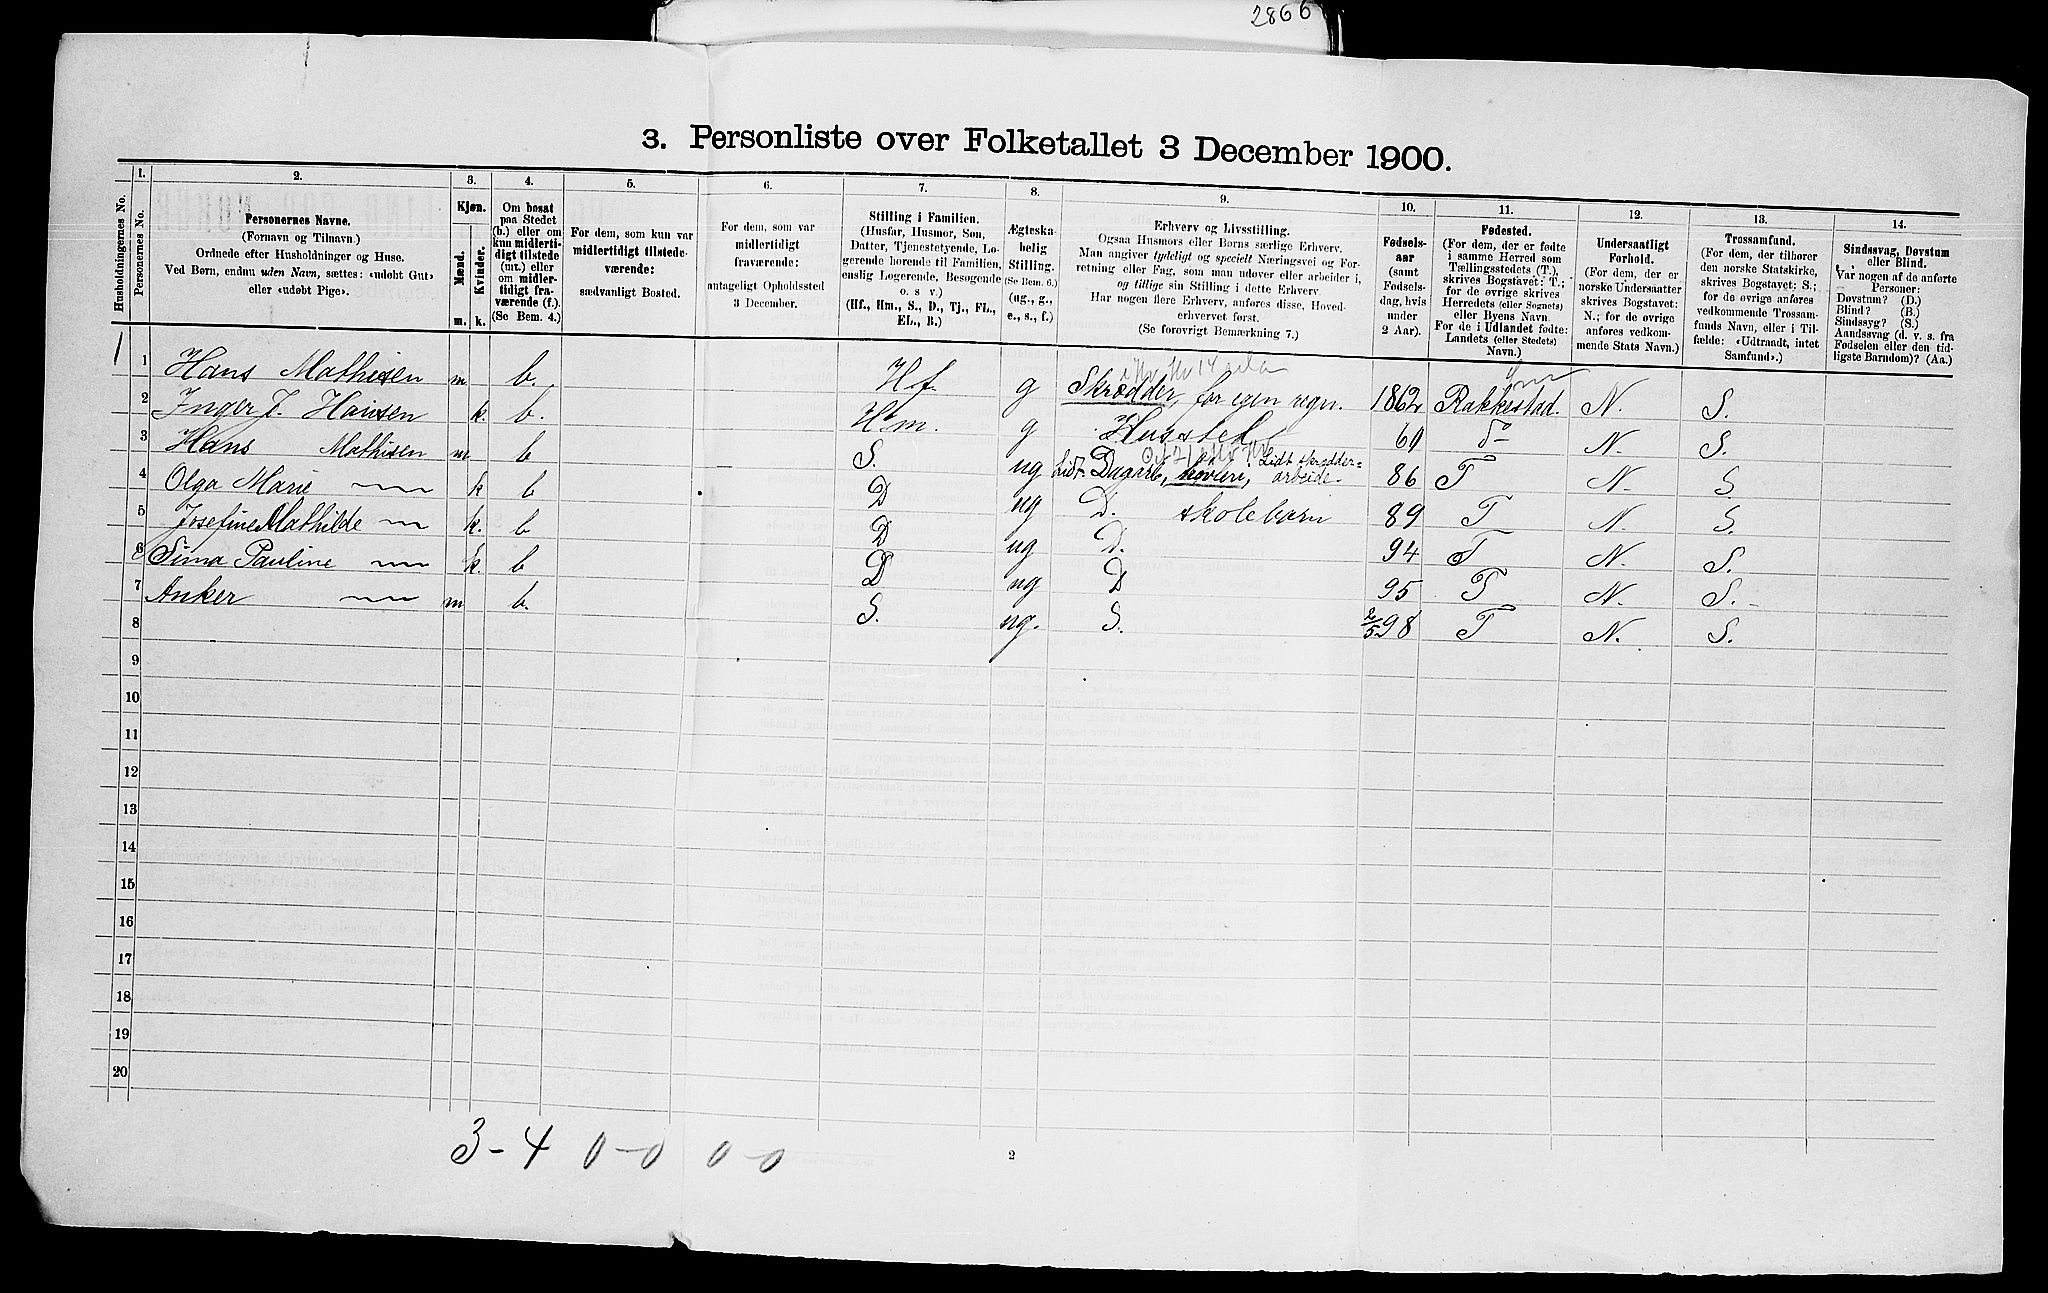 2866
3. Personliste over Folketallet 3 December 1900.
Husholdningernes No.
1. Personernes No.
2. Personernes Navne. (Fornavn og Tilnavn.) Ordnede efter Husholdninger og Huse. Ved Børn, endnu uden Navn, sættes: «udøbt Gut» eller «udøbt Pige».
3. Kjøn. Mænd. m. Kvinder. k.
4. Om bosat paa Stedet (b.) eller om kun midlertidigt tilstede (mt.) eller om midlertidigt fraværende (f.) (Se Bem. 4.)
5. For dem, som kun var midlertidigt tilstedeværende: sædvanligt Bosted.
6. For dem, som var midlertidigt fraværende: antageligt Opholdssted 3 December.
7. Stilling i Familien. (Husfar, Husmor, Søn, Datter, Tjenestetyende, Logerende hørende til Familien, enslig Logerende, Besøgende o. s v.) (Hf., Hm., S., D., Tj., FL., EL., B.)
8. Ægteskabelig Stilling. (Se Bem. 6.) (ug., g., e., s., f.)
9. Erhverv og Livsstilling. Ogsaa Husmors eller Børns særlige Erhverv. Man angiver tydeligt og specielt Næringsvei og Forretning eller Fag, som man udøver eller arbeider i, og tillige sin Stilling i dette Erhverv. Har nogen flere Erhverv, anføres disse, Hovederhvervet først. (Se forøvrigt Bemærkning 7.)
10. Fødselsaar (samt Fødselsdag, hvis under 2 Aar).
11. Fødested. (For dem, der er fødte i samme Herred som Tællingsstedets (T.), skrives Bogstavet: T.; for de øvrige skrives Herredets (eller Sognets) eller Byens Navn. For de i Udlandet fødte: Landets (eller Stedets) Navn.)
12. Undersaatligt Forhold. (For dem, der er norske Undersaatter skrives Bogstavet: N.; for de øvrige anføres vedkommende Stats Navn.)
13. Trossamfund. (For dem, der tilhører den norske Statskirke, skrives Bogstavet: S.; for de øvrige anføres vedkommende Trossamfunds Navn, eller i Tilfælde: «Udtraadt, intet Samfund».)
14. Sindssvag, Døvstum eller Blind. Var nogen af de anførte Personer: Døvstum? (D.) Blind? (B.) Sindssyg? (S.) Aandssvag (d. v. s. fra Fødselen eller den tidligste Barndom)? (Aa.)
1 1 Hans Mathisen m b. Hf. g Skrædder, for egen regn. 1862 Rakkestad. N. S.
2 Inger J. Hansen k. b. Hm. g Husstel 60 do N. S.
3 Hans Mathisen m b S. ug Lidt Dagarb, Lidt skrædderarbeide. 86 T N. S
4 Olga Marie k b D ug D. skolebarn 89 T N. S.
5 Josefine Mathilde k. b D ug D. 94 T N. S.
6 Sima Pauline k. b D ug D 95 T N. S.
7 Anker m b. S. ug. S. 2/5 98 T N. S.
8
9
10
11
12
13
14
15
16
17
18
19
20
3-4 0-0 0-0
2